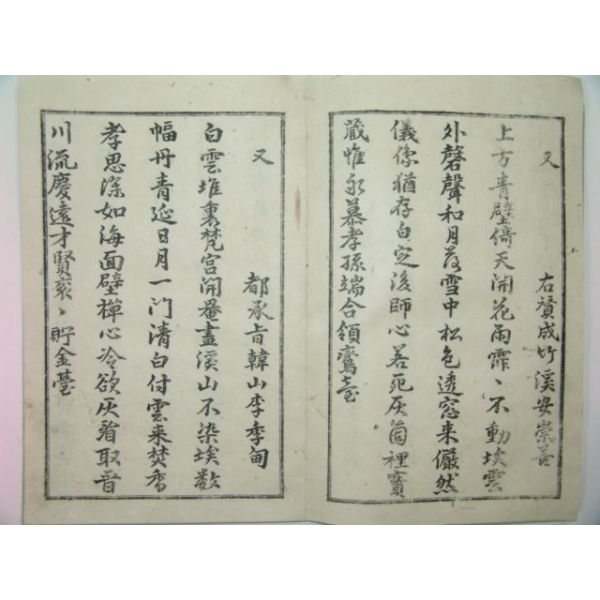 又
右賛成竹溪安崇善
上方青壁倚天開花雨霏〻不動埃雲
外磬聲和月落雪中松色透窓来儼然
儀像猶存白㝎後師心若死灰箇裡寳
蔵惟永慕孝孫端合領鸞臺
又
都承旨韓山李季甸
白雲堆裏梵宮開罨畫溪山不染埃数
幅丹青延日月一门清白付雲来焚香
孝思深如海面壁禅心冷欲灰看取晋
川流慶遠才賢衮〻貯金臺